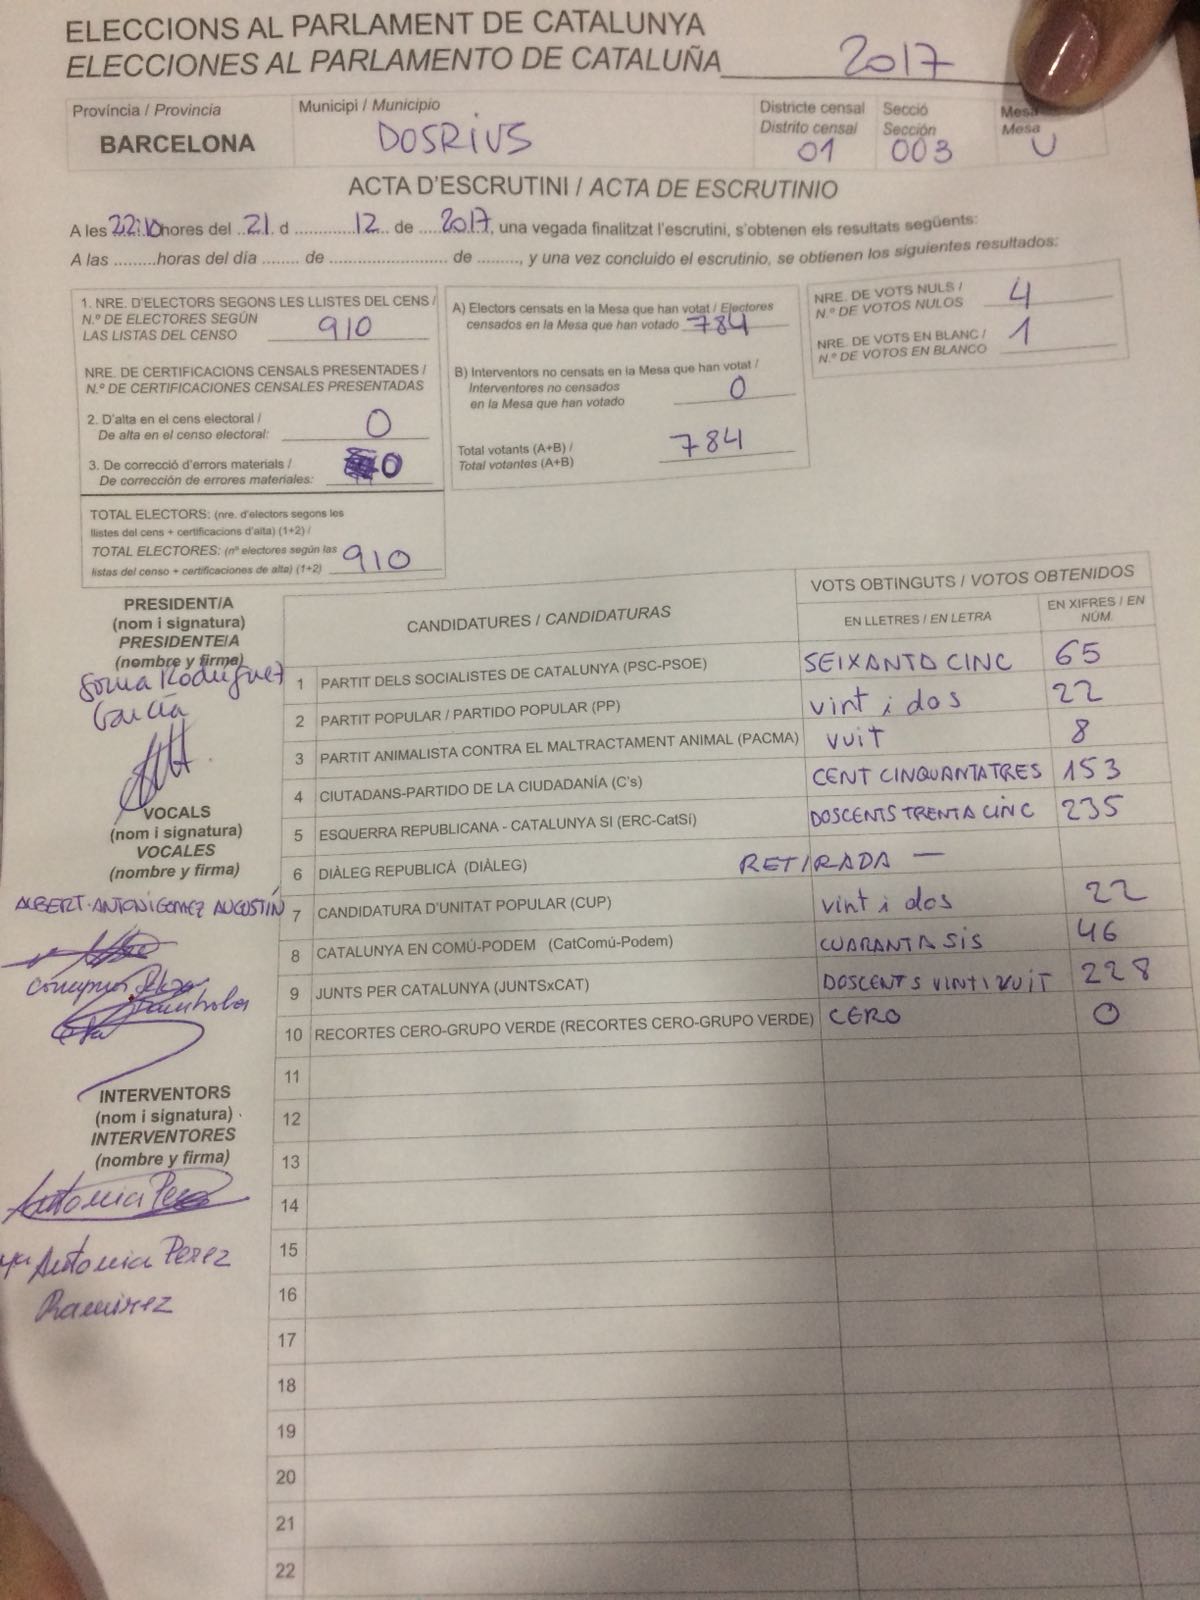 ELECCIONS AL PARLAMENT DE CATALUNYA
ELECCIONES AL PARLAMENTO DE CATALUÑA 2017
Província / Provincia
BARCELONA
Municipi / Municipio
DOSRIUS
Districte censal
Distrito censal
01
Secció
Sección
003
Mesa
Mesa
U
ACTA D'ESCRUTINI / ACTA DE ESCRUTINIO
A les 22:10 hores del 21 d 12 de 2017, una vegada finalitzat l'escrutini, s'obtenen els resultats següents:
A las .........horas del día ........ de ........................ de ........, y una vez concluido el escrutinio, se obtienen los siguientes resultados:
1. NRE. D'ELECTORS SEGONS LES LLISTES DEL CENS /
N.º DE ELECTORES SEGÚN
LAS LISTAS DEL CENSO 910
NRE. DE CERTIFICACIONS CENSALS PRESENTADES /
N.º DE CERTIFICACIONES CENSALES PRESENTADAS
2. D'alta en el cens electoral /
De alta en el censo electoral: 0
3. De correcció d'errors materials /
De corrección de errores materiales: 0
TOTAL ELECTORS: (nre. d'electors segons les
llistes del cens + certificacions d'alta) (1+2) /
TOTAL ELECTORES: (nº electores según las
listas del censo + certificaciones de alta) (1+2) 910
A) Electors censats en la Mesa que han votat / Electores
censados en la Mesa que han votado 784
B) Interventors no censats en la Mesa que han votat /
Interventores no censados
en la Mesa que han votado 0
Total votants (A+B) /
Total votantes (A+B) 784
NRE. DE VOTS NULS /
N.º DE VOTOS NULOS 4
NRE. DE VOTS EN BLANC /
N.º DE VOTOS EN BLANCO 1
PRESIDENT/A
(nom i signatura)
PRESIDENTE/A
(nombre y firma)
Sonia Rodríguez
García
VOCALS
(nom i signatura)
VOCALES
(nombre y firma)
ALBERT-ANTONI GOMEZ AUGUSTÍN
INTERVENTORS
(nom i signatura)
INTERVENTORES
(nombre y firma)
Antonia Perez
Mª Antonia Perez
Ramirez
CANDIDATURES / CANDIDATURAS
VOTS OBTINGUTS / VOTOS OBTENIDOS
EN LLETRES / EN LETRA
EN XIFRES / EN
NÚM.
1 PARTIT DELS SOCIALISTES DE CATALUNYA (PSC-PSOE) SEIXANTA CINC 65
2 PARTIT POPULAR / PARTIDO POPULAR (PP) vint i dos 22
3 PARTIT ANIMALISTA CONTRA EL MALTRACTAMENT ANIMAL (PACMA) VUIT 8
4 CIUTADANS-PARTIDO DE LA CIUDADANÍA (C's) CENT CINQUANTATRES 153
5 ESQUERRA REPUBLICANA - CATALUNYA SI (ERC-CatSí) DOSCENTS TRENTA CINC 235
6 DIÀLEG REPUBLICÀ (DIÀLEG) RETIRADA —
7 CANDIDATURA D'UNITAT POPULAR (CUP) vint i dos 22
8 CATALUNYA EN COMÚ-PODEM (CatComú-Podem) CUARANTA SIS 46
9 JUNTS PER CATALUNYA (JUNTSxCAT) DOSCENTS VINT I VUIT 228
10 RECORTES CERO-GRUPO VERDE (RECORTES CERO-GRUPO VERDE) CERO 0
11
12
13
14
15
16
17
18
19
20
21
22